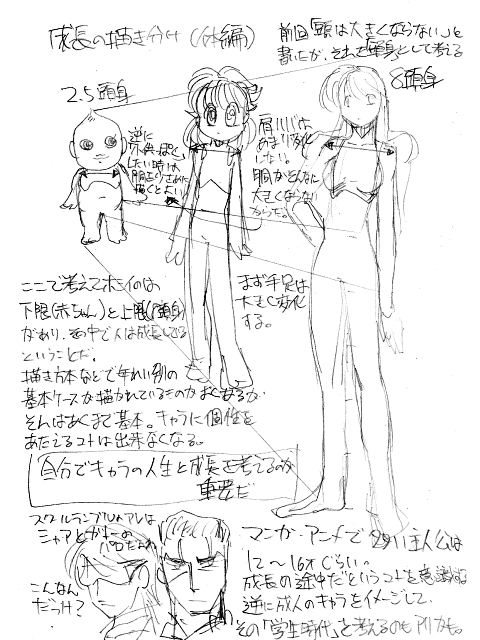 成長の描き分け(体編)
前回「頭は大きくならない」と
書いたが、それを頭身として考える
2.5頭身
8頭身
逆に
子供っぽく
したい時は
描くとよい
肩ハバは
あまり変化
しない。
胸がそんなに
大きくならない
からだ。
まず手足は
大きく変化
する。
ここで考えてホシイのは
下限(赤ちゃん)と上限(8頭身)
があり、その中で人は成長している
ということだ。
描き方本などで年れい別の
基本ケースが描かれているものがよくあるが
それはあくまで基本。キャラに個性を
あたえるコトは出来なくなる。
自分でキャラの人生と成長を考えるのが
重要だ
スクールランブルのアレは
シャアとガルマの
パロだよね
こんなん
だっけ?
マンガ・アニメで 主人公は
12~16才ぐらい。
成長の途中だというコトを意識する
逆に成人のキャラをイメージして、
その「学生時代」を考えるのもアリかも。